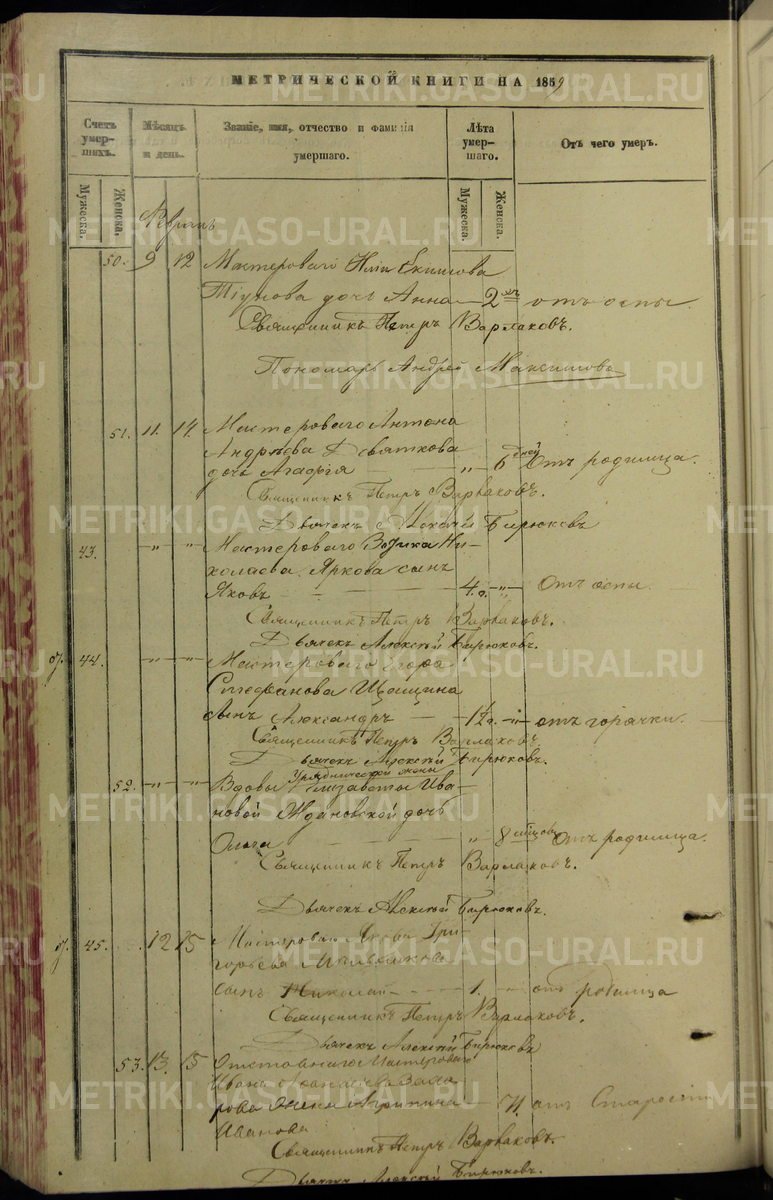 МЕТРИЧЕСКОЙ КНИГИ НА 1859
Счетъ умер-шихъ.
Мѣсяцъ и день.
Званіе, имя, отчество и фамилія умершаго.
Лѣта умер-шаго.
Отъ чего умеръ.
Мужеска.
Женска.
Мужеска.
Женска.
50. 9 12 Мастероваго Екимова
дочь Анна 2 отъ оспы
Священникъ Петръ Варлаковъ.
Пономарь Андрей Максимовъ
51. 11. 14. Мастероваго Антона
Андрѣева Девяткова
дочь Агафія „ 6 дней Отъ родимца.
Священникъ Петръ Варлаковъ.
Дьячекъ Алексѣй Бирюковъ
43. „ „ Мастероваго Ни-
колаева Яркова сынъ
Яковъ 4 г. „ Отъ оспы.
Священникъ Петръ Варлаковъ.
Дьячекъ Алексѣй Бирюковъ.
44. „ „ Мастероваго Егора
Стефанова сынъ Александръ 1½ г. „ отъ горячки.
Священникъ Петръ Варлаковъ
Дьячекъ Алексѣй Бирюковъ.
Урядничей жены
52. „ „ Вдовы Елизаветы Ива-
новой Ждановской дочь
Ольга „ 8 Отъ родимца.
Священникъ Петръ Варлаковъ.
Дьячекъ Алексѣй Бирюковъ.
45. 12 15 Мастероваго Якова Гри-
горьева
сынъ Николай 1. отъ родимца
Священникъ Петръ Варлаковъ.
Дьячекъ Алексѣй Бирюковъ
53. 13. 15 Отставнаго Мастероваго
Ивана
жена Агрипина 71. отъ Старости
Иванова
Священникъ Петръ Варлаковъ.
Дьячекъ Алексѣй Бирюковъ.
METRIKI.GASO-URAL.RU